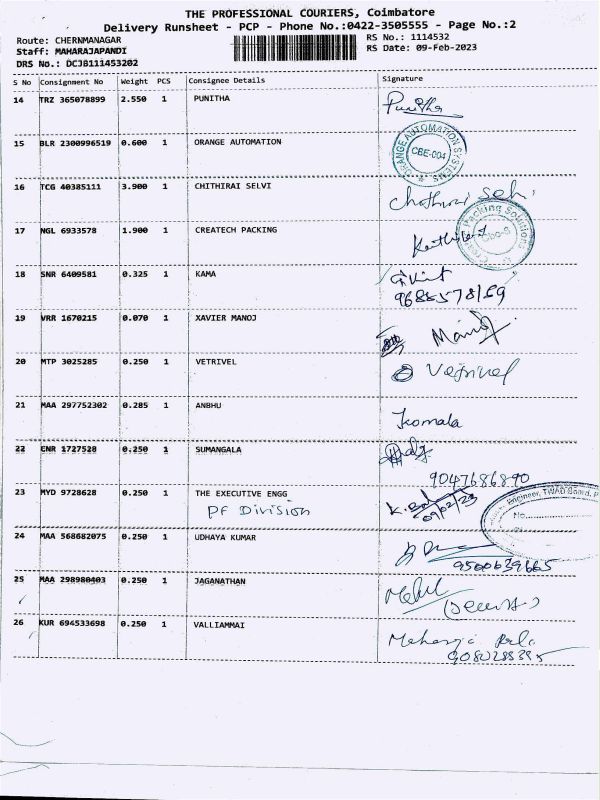 THE PROFESSIONAL COURIERS, Coimbatore
Delivery Runsheet - PCP - Phone No.:0422-3505555 - Page No.:2
Route: CHERNMANAGAR RS No.: 1114532
Staff: MAHARAJAPANDI RS Date: 09-Feb-2023
DRS No.: DCJB111453202
S No Consignment No Weight PCS Consignee Details Signature
14 TRZ 365078899 2.550 1 PUNITHA Punitha
15 BLR 2300996519 0.600 1 ORANGE AUTOMATION
ORANGE AUTOMATION SYSTEMS
CBE-004
16 TCG 40385111 3.900 1 CHITHIRAI SELVI
17 NGL 6933578 1.900 1 CREATECH PACKING
Packing Solutions
18 SNR 6409581 0.325 1 KAMA
19 VRR 1670215 0.070 1 XAVIER MANOJ Manoj
20 MTP 3025285 0.250 1 VETRIVEL Vetrivel
21 MAA 297752302 0.285 1 ANBHU Komala
22 ENR 1727528 0.250 1 SUMANGALA
9047686890
23 MYD 9728628 0.250 1 THE EXECUTIVE ENGG
PF Division 09/02/23
Engineer, TWAD Board, P
No.
24 MAA 568682075 0.250 1 UDHAYA KUMAR
9500639665
25 MAA 298980403 0.250 1 JAGANATHAN
26 KUR 694533698 0.250 1 VALLIAMMAI